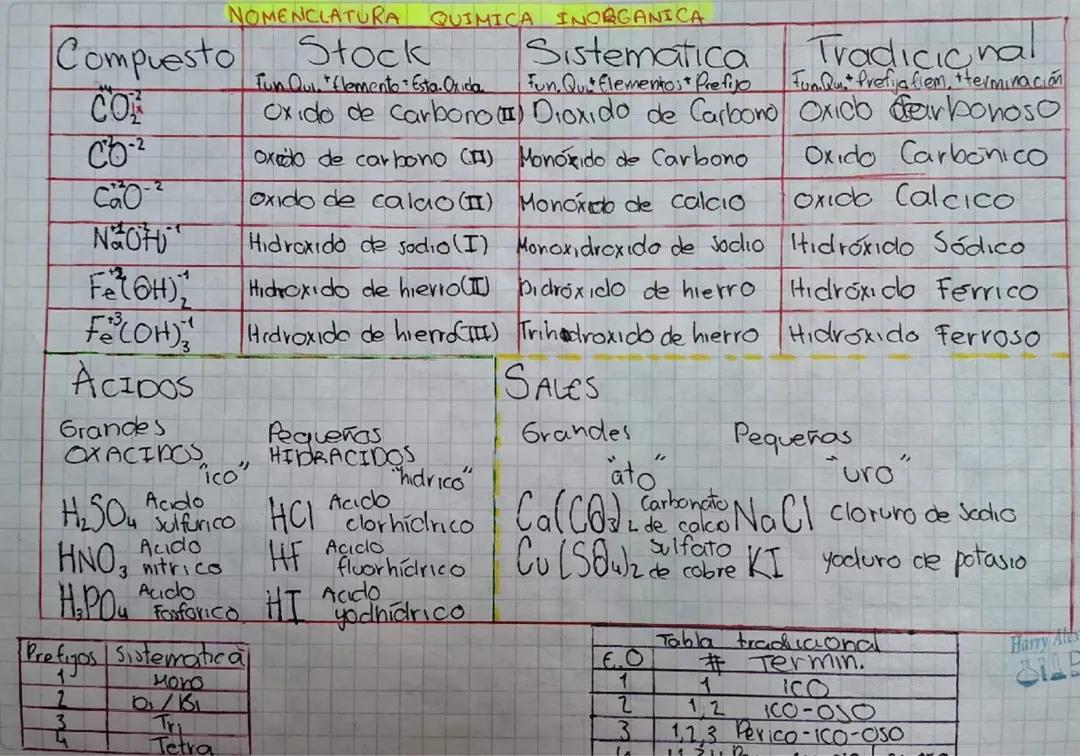 NOMENCLATURA QUIMICA INORGANICA
Compuesto Stock Sistematica Tradicional
Fun.Qui.+Elemento+Esta.Oxida. Fun.Qui+Elementos+Prefijo Fun.Qu.+Prefijo+elem.+terminación
CO₂⁻² Oxido de carbono (II) Dioxido de Carbono Oxido Carbonoso
CO⁻² Oxido de carbono (II) Monóxido de Carbono Oxido Carbonico
Ca⁺²O⁻² Oxido de calcio (II) Monóxido de calcio Oxido Calcico
Na⁺¹(OH)⁻¹ Hidroxido de sodio (I) Monoxidroxido de sodio Hidróxido Sódico
Fe⁺²(OH)₂⁻¹ Hidroxido de hierro (II) Didróxido de hierro Hidróxido Ferrico
Fe⁺³(OH)₃⁻¹ Hidroxido de hierro (III) Trihidroxido de hierro Hidróxido Ferroso
ÀCIDOS
Grandes Pequeñas
OXACIDOS HIDRACIDOS
"ico" "hidrico"
H₂SO₄ Acido Sulfúrico HCl Acido clorhídrico
HNO₃ Acido nitrico HF Acido fluorhídrico
H₃PO₄ Acido Fosforico HI Acido yodhídrico
SALES
Grandes Pequeñas
"ato" "uro"
Ca(CO₃)₂ Carbonato de calco NaCl cloruro de Sodio
Cu(SO₄)₂ Sulfato de cobre KI yoduro de potasio
Prefijos Sistematica
1 Mono
2 Di/Bi
3 Tri
4 Tetra
Tabla tradicional
E.O # Termin.
1 1 ico
2 1,2 ico-oso
3 1,2,3 Perico-ico-oso
Harry